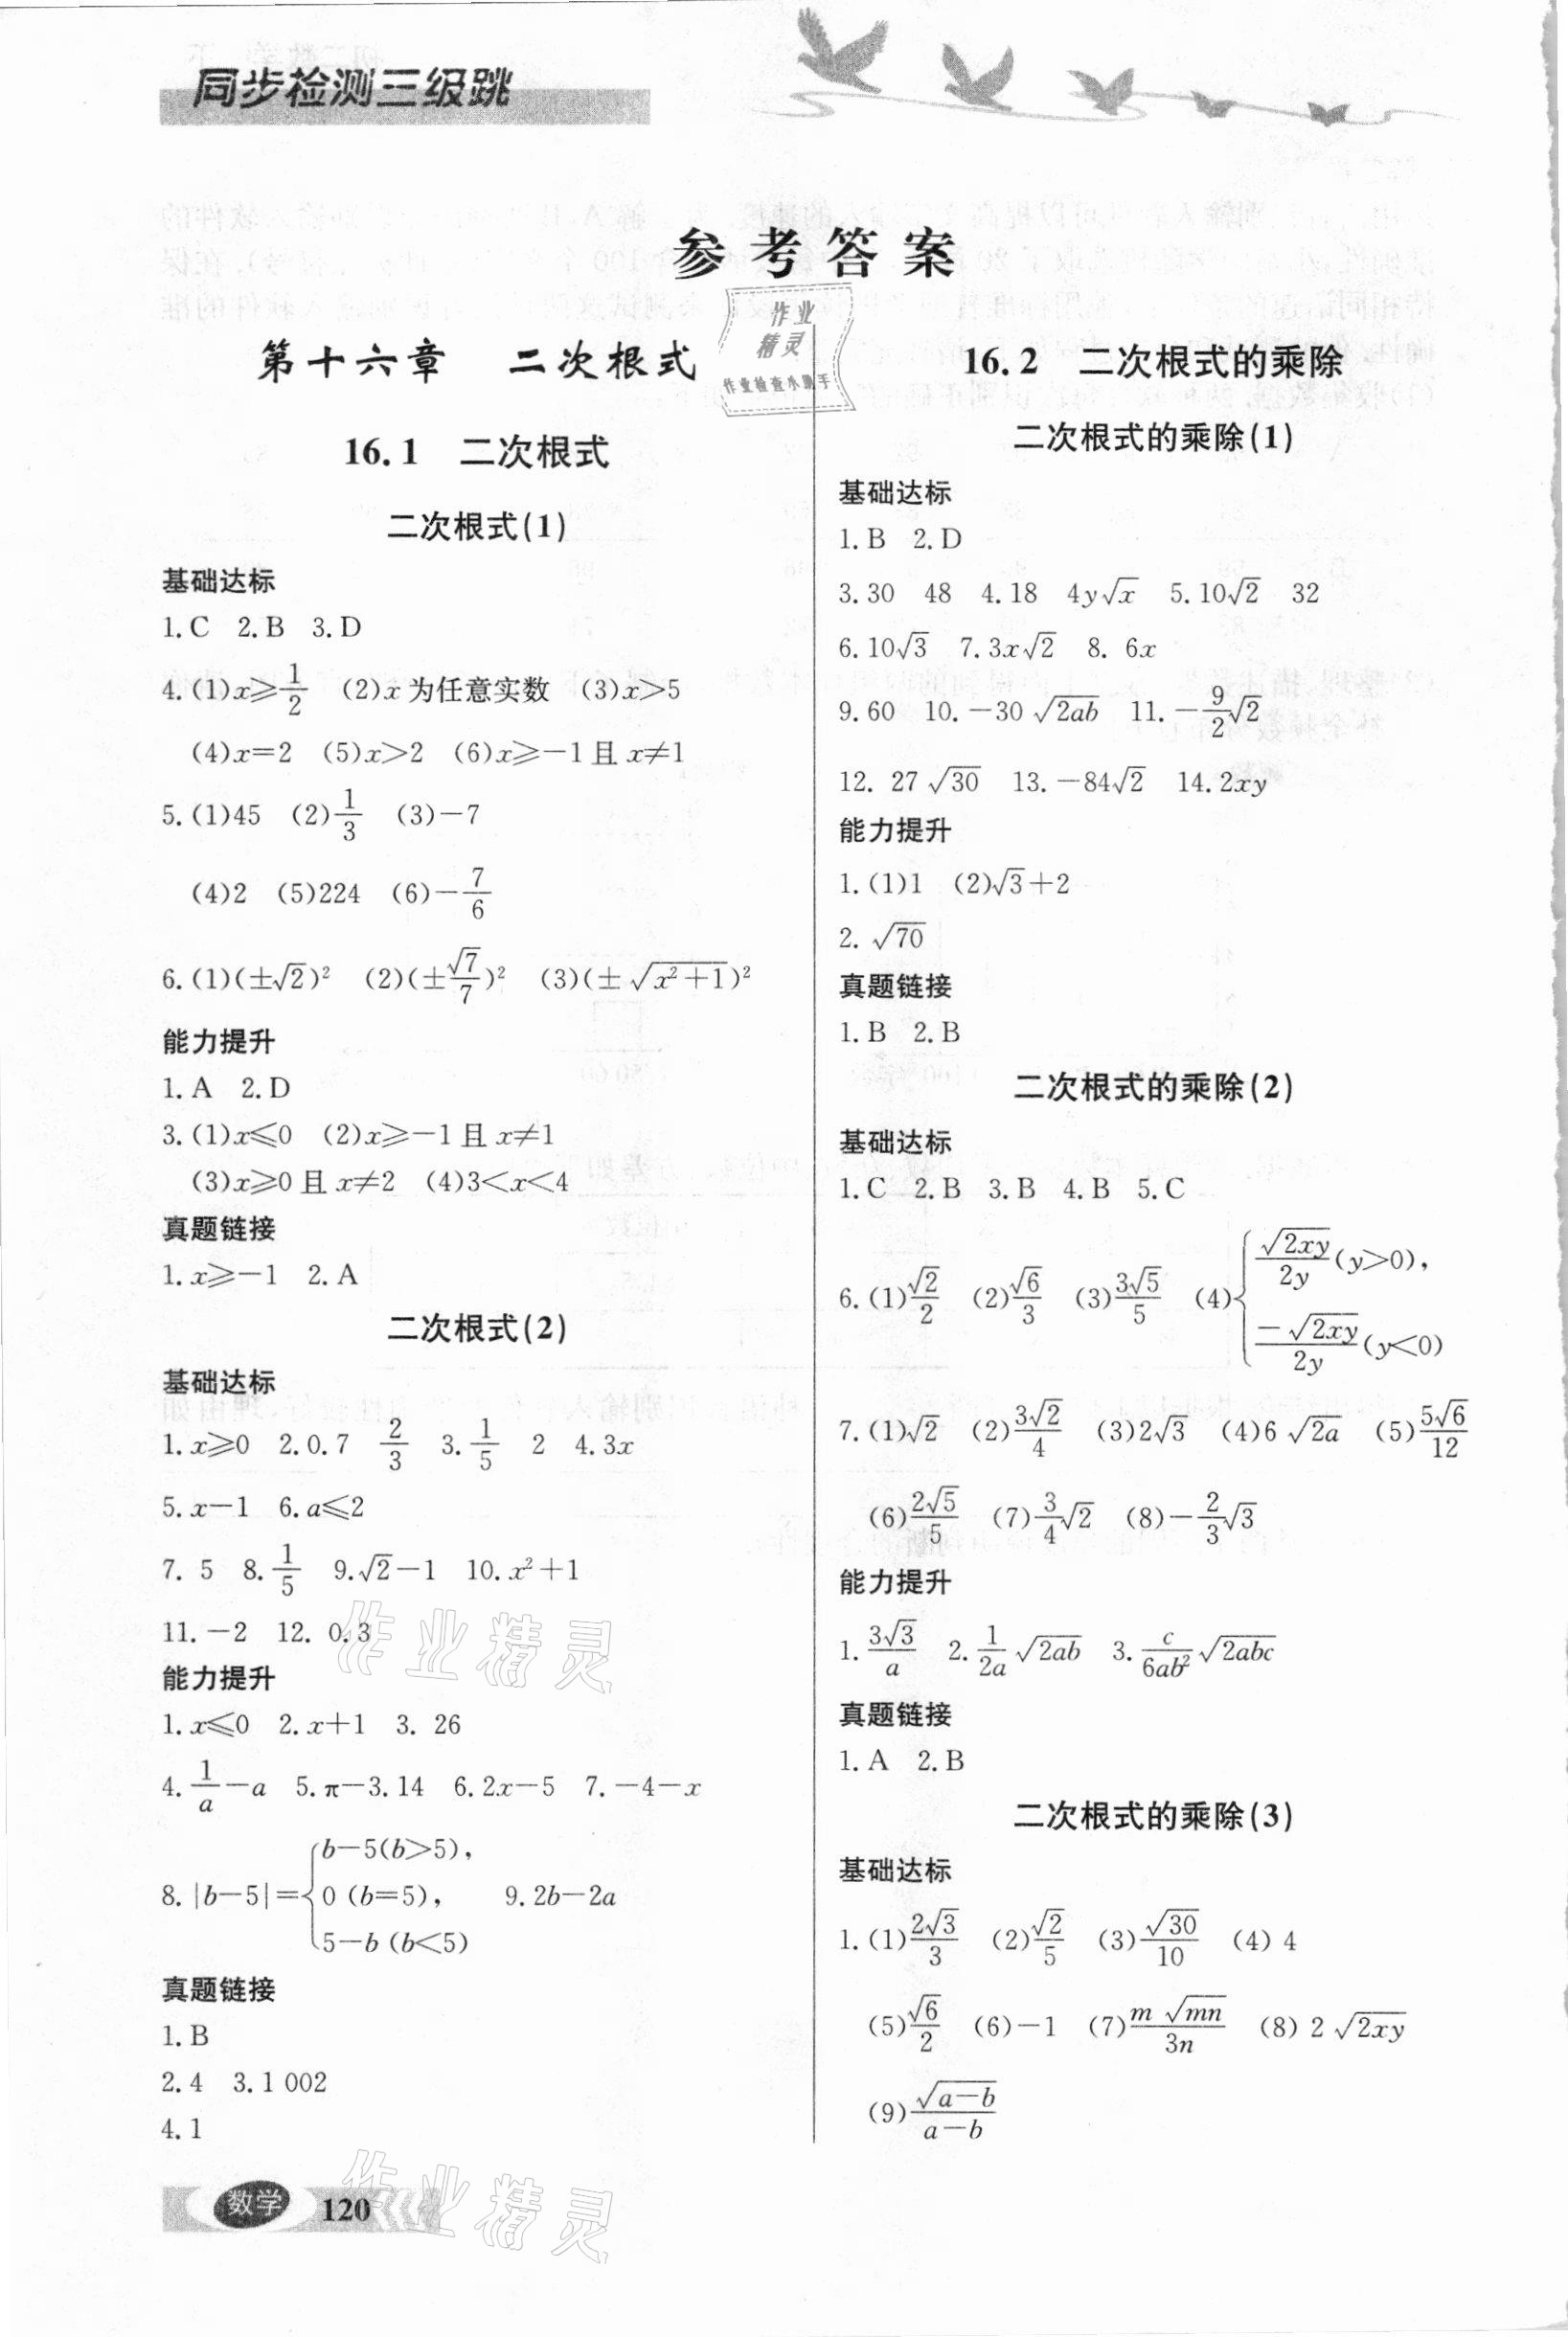 同步检测三级跳
参考答案
作业
精灵
作业检查小助手
第十六章 二次根式
16.1 二次根式
二次根式(1)
基础达标
1.C 2.B 3.D
4.(1)x≥1/2 (2)x为任意实数 (3)x>5
(4)x=2 (5)x>2 (6)x≥-1且x≠1
5.(1)45 (2)1/3 (3)-7
(4)2 (5)224 (6)-7/6
6.(1)(±√2)² (2)(±√7/7)² (3)(±√(x²+1))²
能力提升
1.A 2.D
3.(1)x≤0 (2)x≥-1且x≠1
(3)x≥0且x≠2 (4)3<x<4
真题链接
1.x≥-1 2.A
二次根式(2)
基础达标
1.x≥0 2.0.7 2/3 3.1/5 2 4.3x
5.x-1 6.a≤2
7. 5 8.1/5 9.√2-1 10.x²+1
11.-2 12. 0.3
能力提升
1.x≤0 2.x+1 3. 26
4.1/a-a 5.π-3.14 6.2x-5 7.-4-x
8.|b-5|={b-5(b>5),
0 (b=5), 9.2b-2a
5-b (b<5)
真题链接
1.B
2.4 3.1 002
4.1
16.2 二次根式的乘除
二次根式的乘除(1)
基础达标
1.B 2.D
3.30 48 4.18 4y√x 5.10√2 32
6.10√3 7.3x√2 8. 6x
9.60 10.-30√(2ab) 11.-9/2√2
12. 27√30 13.-84√2 14.2xy
能力提升
1.(1)1 (2)√3+2
2. √70
真题链接
1.B 2.B
二次根式的乘除(2)
基础达标
1.C 2.B 3.B 4.B 5.C
6.(1)√2/2 (2)√6/3 (3)3√5/5 (4){√(2xy)/2y(y>0),
-√(2xy)/2y(y<0)
7.(1)√2 (2)3√2/4 (3)2√3 (4)6√(2a) (5)5√6/12
(6)2√5/5 (7)3/4√2 (8)-2/3√3
能力提升
1.3√3/a 2.1/2a√(2ab) 3.c/6ab²√(2abc)
真题链接
1.A 2.B
二次根式的乘除(3)
基础达标
1.(1)2√3/3 (2)√2/5 (3)√30/10 (4) 4
(5)√6/2 (6)-1 (7)m√(mn)/3n (8) 2√(2xy)
(9)√(a-b)/a-b
作业精灵
数学 120
作业精灵